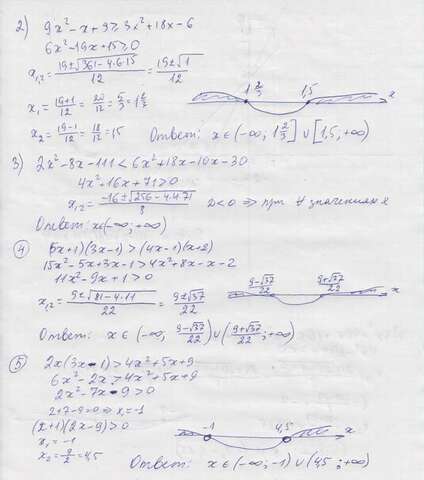 2) 9x² - x + 9 ≥ 3x² + 18x - 6
6x² - 19x + 15 ≥ 0
x₁,₂ = (19 ± √(361 - 4·6·15))/12 = (19 ± 1)/12
x₁ = (19+1)/12 = 20/12 = 5/3 = 1 2/3
x₂ = (19-1)/12 = 18/12 = 1,5
1 2/3 1,5 x
Ответ: x ∈ (-∞; 1 2/3] ∪ [1,5; +∞)
3) 2x² - 8x - 111 < 6x² + 18x - 10x - 30
4x² - 16x + 71 > 0
x₁,₂ = (-16 ± √(256 - 4·4·71))/8 D<0 ⇒ при ∀ значениях x
Ответ: x∈(-∞; +∞)
4) (5x+1)(3x-1) > (4x-1)(x+2)
15x² - 5x + 3x - 1 > 4x² + 8x - x - 2
11x² - 9x + 1 > 0
x₁,₂ = (9 ± √(81 - 4·11))/22 = (9 ± √37)/22
(9-√37)/22 (9+√37)/22 x
Ответ: x ∈ (-∞; (9-√37)/22) ∪ ((9+√37)/22; +∞)
5) 2x(3x - 1) > 4x² + 5x + 9
6x² - 2x > 4x² + 5x + 9
2x² - 7x - 9 > 0
2+7-9=0 ⇒ x₁=-1
(x+1)(2x-9) > 0
x₁ = -1
x₂ = 9/2 = 4,5
-1 4,5 x
Ответ: x ∈ (-∞; -1) ∪ (4,5; +∞)